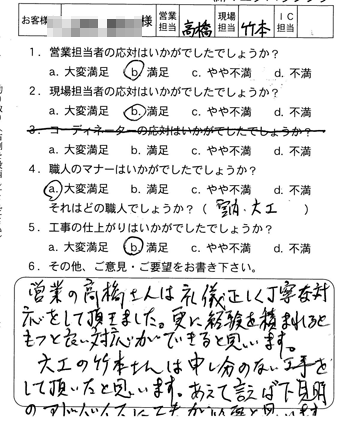 お客様 様 営業担当 高橋 現場担当 竹本 IC担当
1．営業担当者の応対はいかがでしたでしょうか？
a. 大変満足 b. 満足 c. やや不満 d. 不満
2．現場担当者の応対はいかがでしたでしょうか？
a. 大変満足 b. 満足 c. やや不満 d. 不満
3．コーディネーターの応対はいかがでしたでしょうか？
a. 大変満足 b. 満足 c. やや不満 d. 不満
4．職人のマナーはいかがでしたでしょうか？
a. 大変満足 b. 満足 c. やや不満 d. 不満
それはどの職人でしょうか？（ 大工 ）
5．工事の仕上がりはいかがでしたでしょうか？
a. 大変満足 b. 満足 c. やや不満 d. 不満
6．その他、ご意見・ご要望をお書き下さい。
営業の高橋さんは礼儀正しく丁寧な対
応をして頂きました。更に経験を積まれると
もっと良い対応ができると思います。
大工の竹本さんは申し分のない工事を
して頂いたと思います。あえて言えば下見時
の